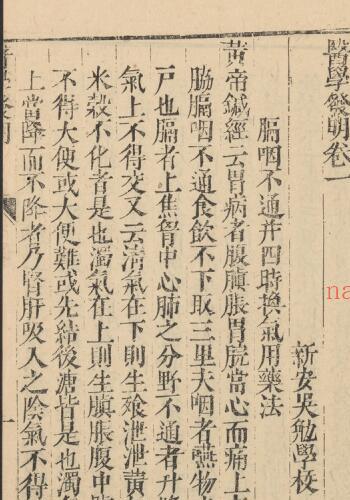 醫學發明卷一
新安吳勉學校
膈咽不通并四時換氣用藥法
黃帝鍼經云胃病者腹䐜脹胃脘當心而痛上
脇膈咽不通食飲不下取三里夫咽者嚥物
戶也膈者上焦胷中心肺之分野不通者升
氣上不得交又云淸氣在下則生飱泄泄黃
米榖不化者是也濁氣在上則生䐜脹腹中
不得大便或大便難或先結後溏皆是也濁
上當降而不降者乃腎肝吸入之陰氣不得
一
na